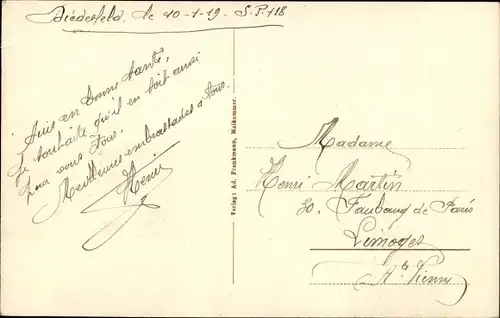 Diedesfeld, le 10-1-19 - S.P. 118
Suis en bonne santé,
Je souhaite qu'il en soit ainsi
pour vous tous.
Meilleures embrassades à tous.
Henri
Verlag: Ad. Frankmann, Maikammer.
Madame
Henri Martin
30. Faubourg de Paris
Limoges
Hte Vienne